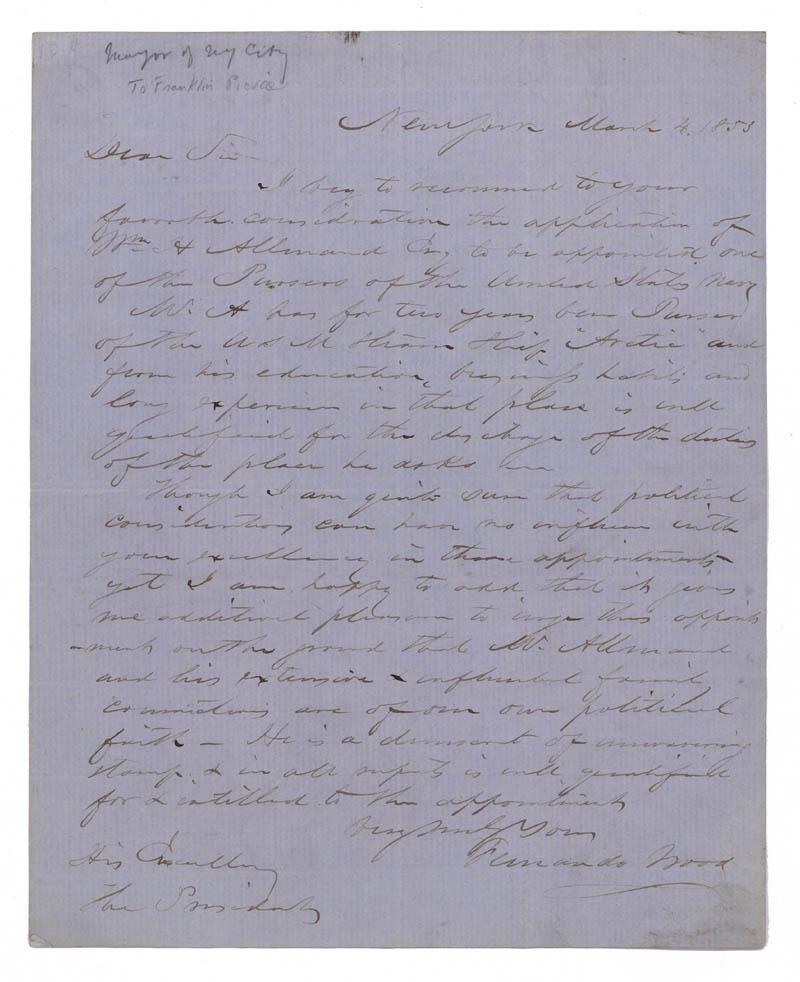 Mayor of NY City
To Franklin Pierce
New York March 4. 1853
Dear Sir
I beg to recommed to your
favorble consideration the application of
Wm Allmand Esq to be appointed one
of the Pursers of the United States Navy
Mr. A has for two years been Purser
of the U S M Steam Ship "Arctic" and
from his education, business habits and
long experience in that place is well
qualified for the discharge of the duties
of the place he asks
Though I am quite sure that political
considerations can have no influence with
your excellency in these appointments
yet I am happy to add that it gives
me additional pleasure to urge this appoint
-ment on the ground that Mr. Allmand
and his extensive & influential family
connections are of our own political
faith – He is a democrat of unwavering
stamp & in all respects is well qualified
for & intitled to the appointment
Very truly Yours
Fernando Wood
His Excellency
The President